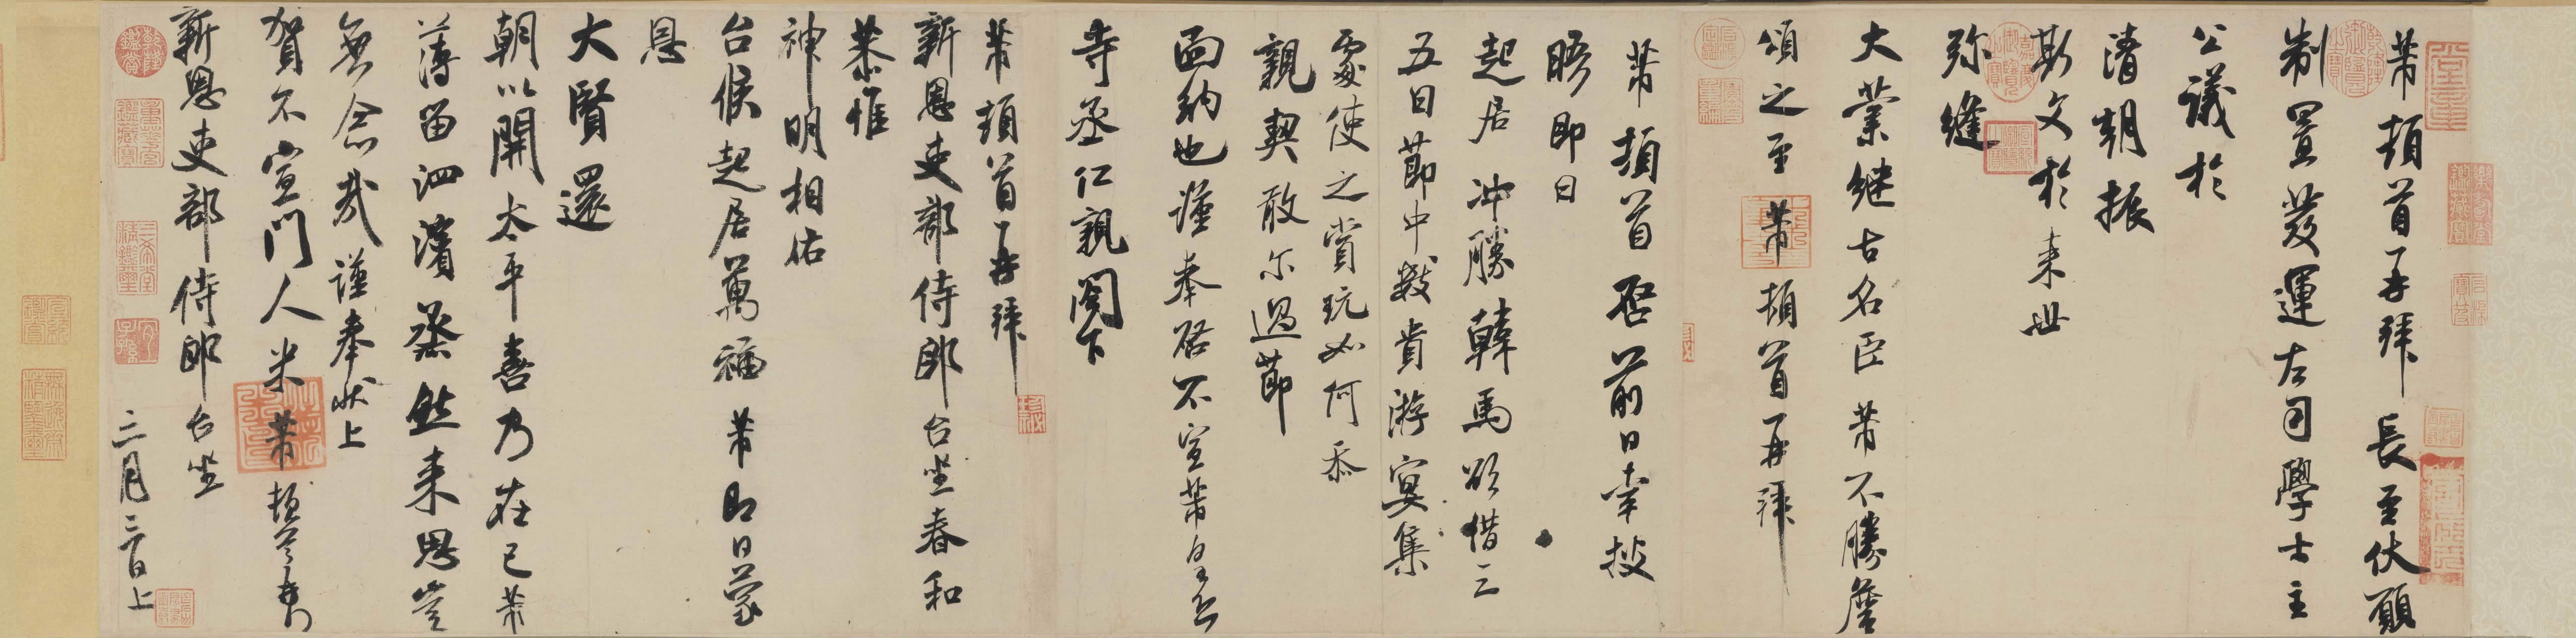 芾頓首再拜長至伏願
制置發運左司學士主
公議於
清朝振
斯文於來世
弥縫
大業繼古名臣芾不勝詹
頌之至芾頓首再拜
芾頓首啓前日幸披
晤即日
起居沖勝韓馬欲借三
五日節中數貴游宴集
處使之賞玩如何忝
親契敢尔過節
面納也謹奉啓不宣芾皇恐
寺丞仁親閣下
芾頓首再拜
新恩吏部侍郎台坐春和
恭惟
神明相佑
台候起居萬福芾即日蒙
恩
大賢還
朝以開太平喜乃在己芾
薄留泗濱蒸然來思豈
無念哉謹奉狀上
賀不宣門人米芾頓首再拜
新恩吏部侍郎台坐
三月三日上